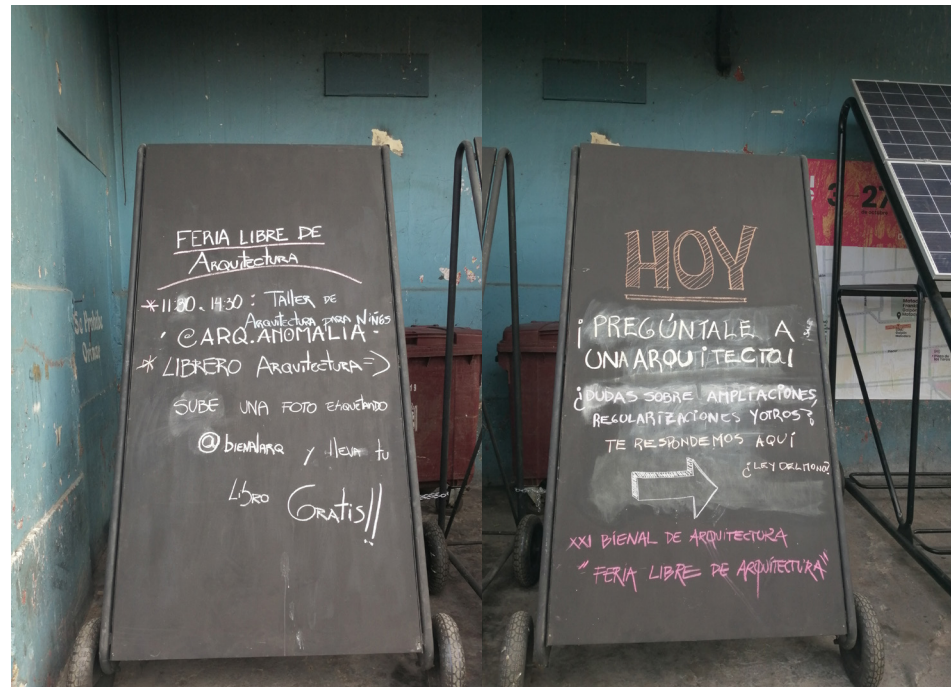 FERIA LIBRE DE
ARQUITECTURA
* 11:30 - 14:30 : TALLER DE
ARQUITECTURA PARA NIÑES
@ARQ.ANOMALIA -
* LIBRERO ARQUITECTURA =>
SUBE UNA FOTO ETIQUETANDO
@bienalarq y lleva tu
LibRO GRATIS!!
HOY
¡PREGÚNTALE A
UNA ARQUITECTA!
¿DUDAS SOBRE AMPLIACIONES,
REGULARIZACIONES Y OTROS?
TE RESPONDEMOS AQUÍ
¿LEY DEL MONO?
XXI BIENAL DE ARQUITECTURA
"FERIA LIBRE DE ARQUITECTURA"
3-27